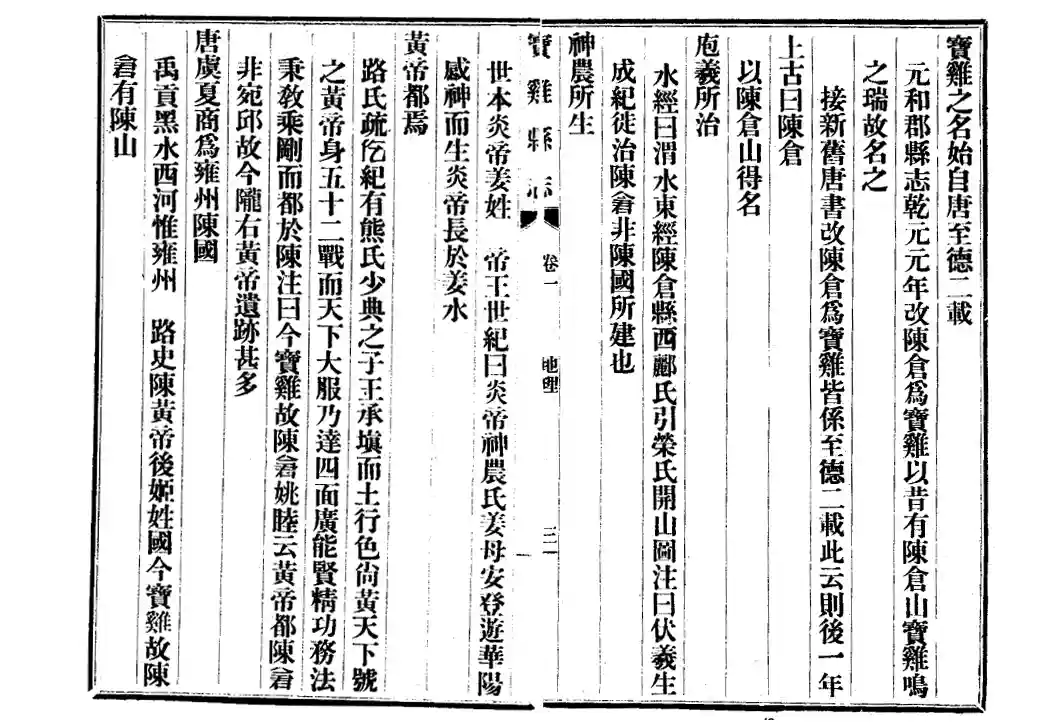 寶雞之名始自唐至德二載
元和郡縣志乾元元年改陳倉爲寶雞以昔有陳倉山寶雞鳴
之瑞故名之
接新舊唐書改陳倉爲寶雞皆係至德二載此云則後一年
上古曰陳倉
以陳倉山得名
庖羲所治
水經曰渭水東經陳倉縣西酈氏引榮氏開山圖注曰伏羲生
成紀徙治陳倉非陳國所建也
神農所生
寶雞縣志
卷一
地理
三
世本炎帝姜姓 帝王世紀曰炎帝神農氏姜母安登遊華陽
感神而生炎帝長於姜水
黃帝都焉
路氏疏仡紀有熊氏少典之子王承塡而土行色尙黃天下號
之黃帝身五十二戰而天下大服乃達四面廣能賢精功務法
秉敎乘剛而都於陳注曰今寶雞故陳倉姚睦云黃帝都陳倉
非宛邱故今隴右黃帝遺跡甚多
唐虞夏商爲雍州陳國
禹貢黑水西河惟雍州 路史陳黃帝後姬姓國今寶雞故陳
倉有陳山